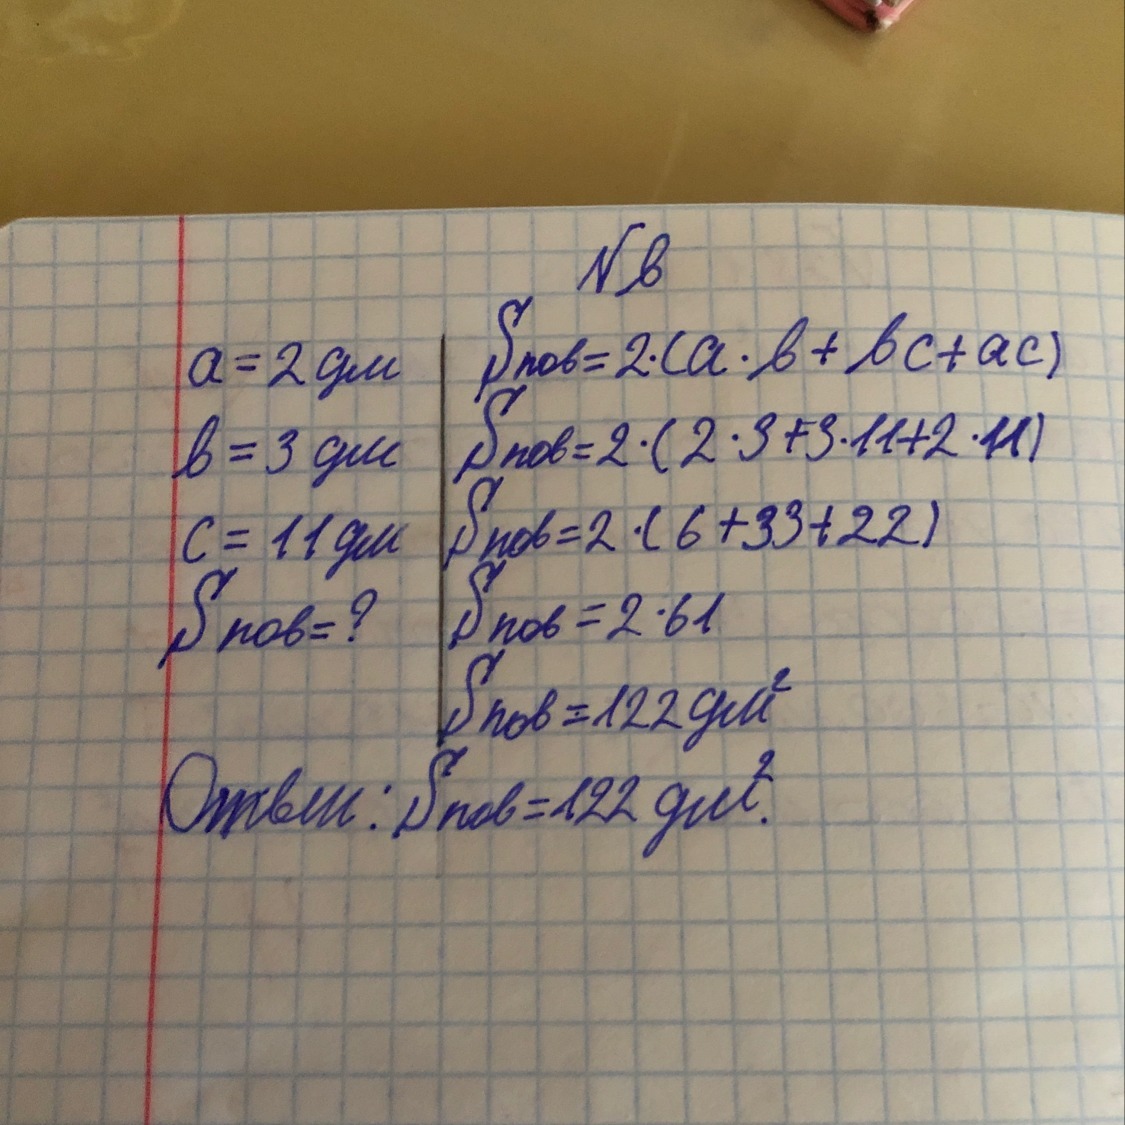 N в
a = 2 дм
в = 3 дм
c = 11 дм
Sпов = ?
Sпов = 2·(a·в + вc + ac)
Sпов = 2·(2·3+3·11+2·11)
Sпов = 2·(6+33+22)
Sпов = 2·61
Sпов = 122 дм²
Ответ: Sпов = 122 дм².